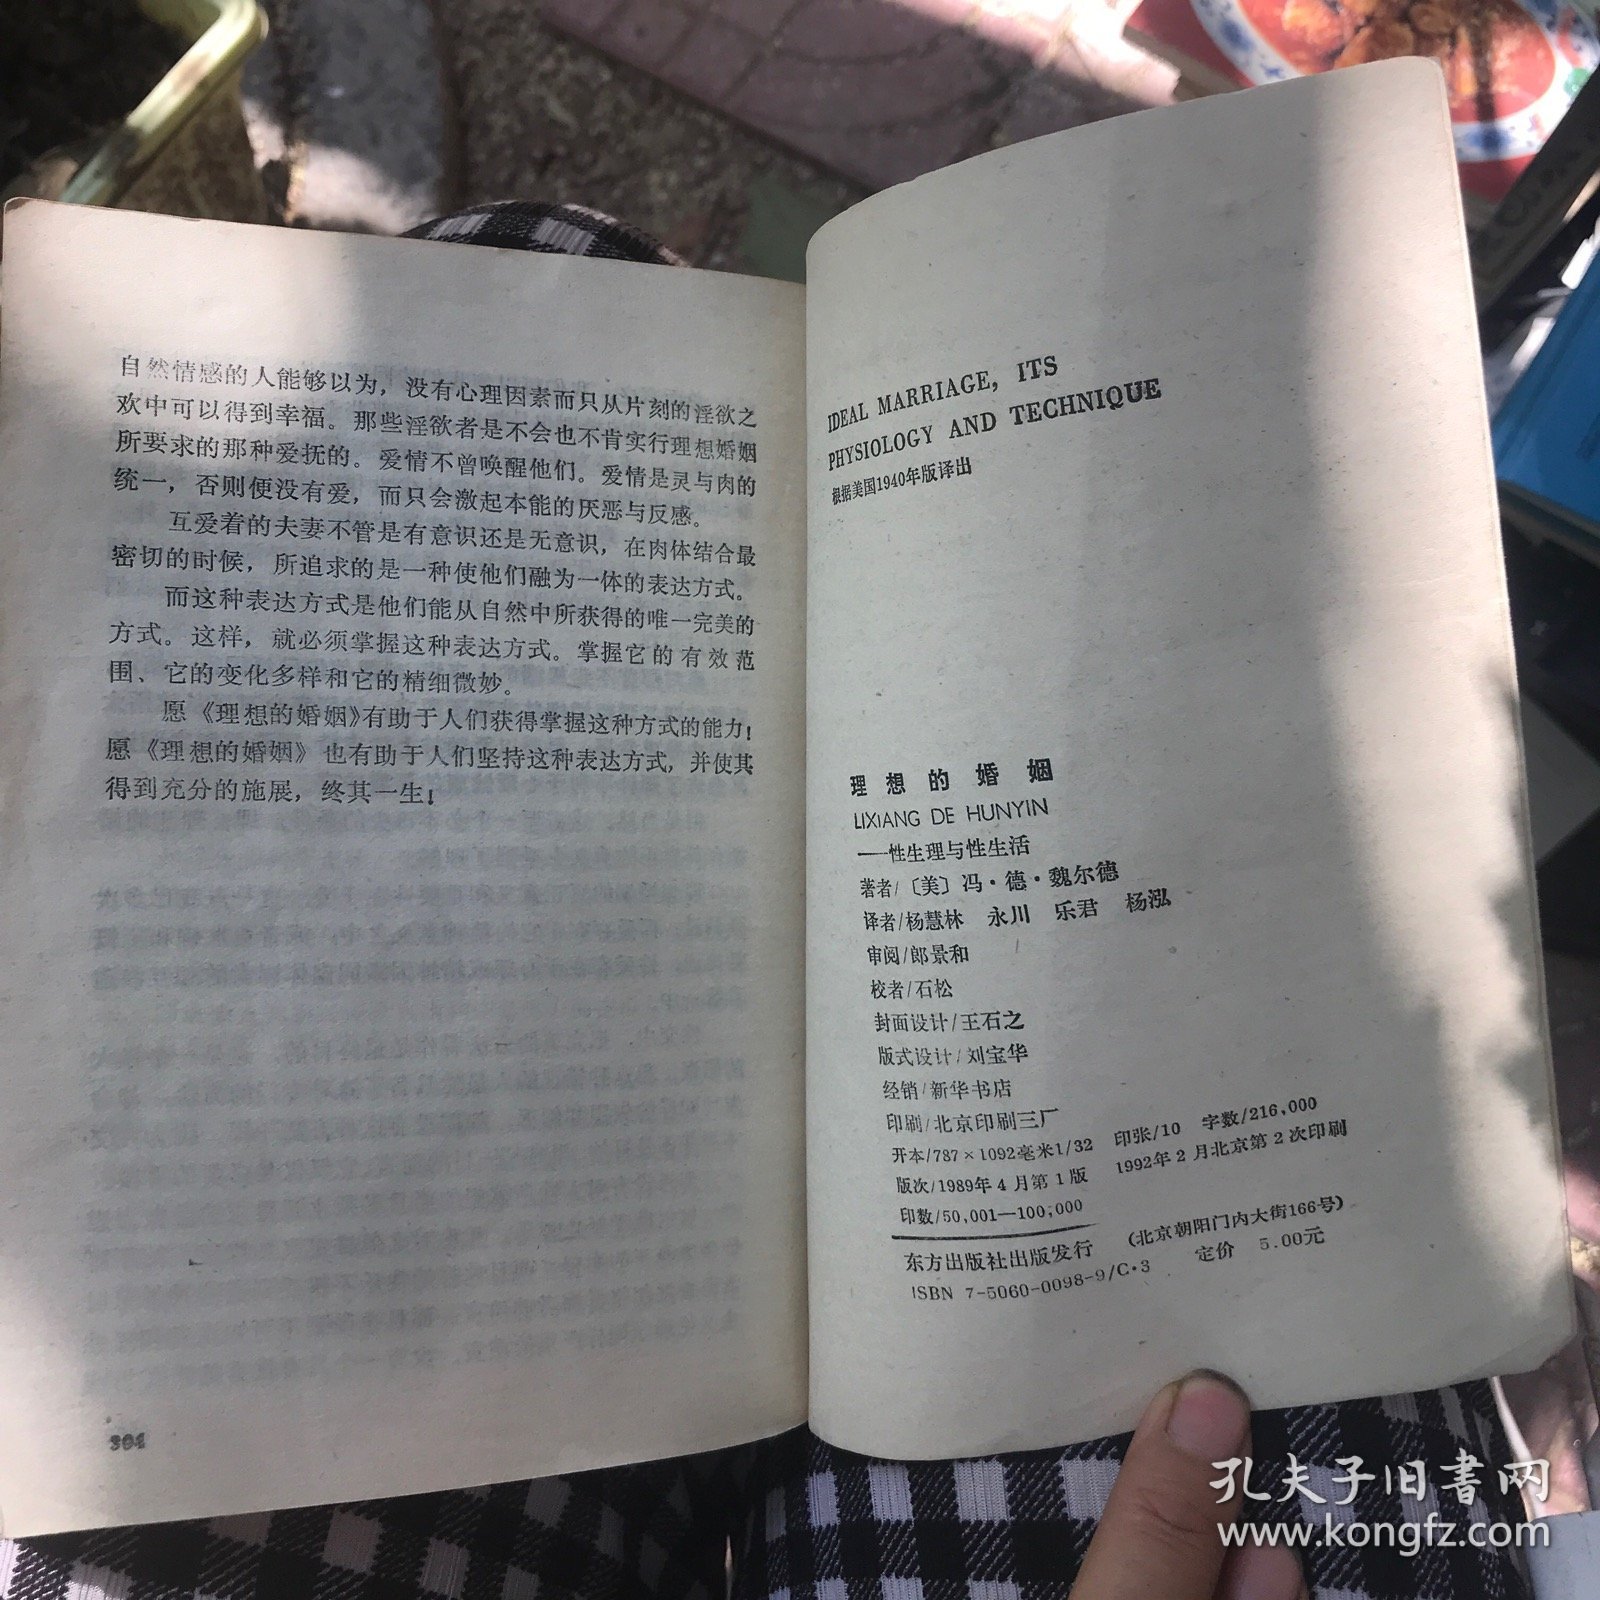 自然情感的人能够以为，没有心理因素而只从片刻的淫欲之
欢中可以得到幸福。那些淫欲者是不会也不肯实行理想婚姻
所要求的那种爱抚的。爱情不曾唤醒他们。爱情是灵与肉的
统一，否则便没有爱，而只会激起本能的厌恶与反感。
互爱着的夫妻不管是有意识还是无意识，在肉体结合最
密切的时候，所追求的是一种使他们融为一体的表达方式。
而这种表达方式是他们能从自然中所获得的唯一完美的
方式。这样，就必须掌握这种表达方式。掌握它的有效范
围、它的变化多样和它的精细微妙。
愿《理想的婚姻》有助于人们获得掌握这种方式的能力！
愿《理想的婚姻》也有助于人们坚持这种表达方式，并使其
得到充分的施展，终其一生！
304
IDEAL MARRIAGE, ITS
PHYSIOLOGY AND TECHNIQUE
根据美国1940年版译出
理想的婚姻
LIXIANG DE HUNYIN
——性生理与性生活
著者/〔美〕冯·德·魏尔德
译者/杨慧林 永川 乐君 杨泓
审阅/郎景和
校者/石松
封面设计/王石之
版式设计/刘宝华
经销/新华书店
印刷/北京印刷三厂
开本/787×1092毫米1/32 印张/10 字数/216,000
版次/1989年4月第1版 1992年2月北京第2次印刷
印数/50,001—100,000
东方出版社出版发行 (北京朝阳门内大街166号)
ISBN 7-5060-0098-9/C·3 定价 5.00元
孔夫子旧书网
www.kongfz.com